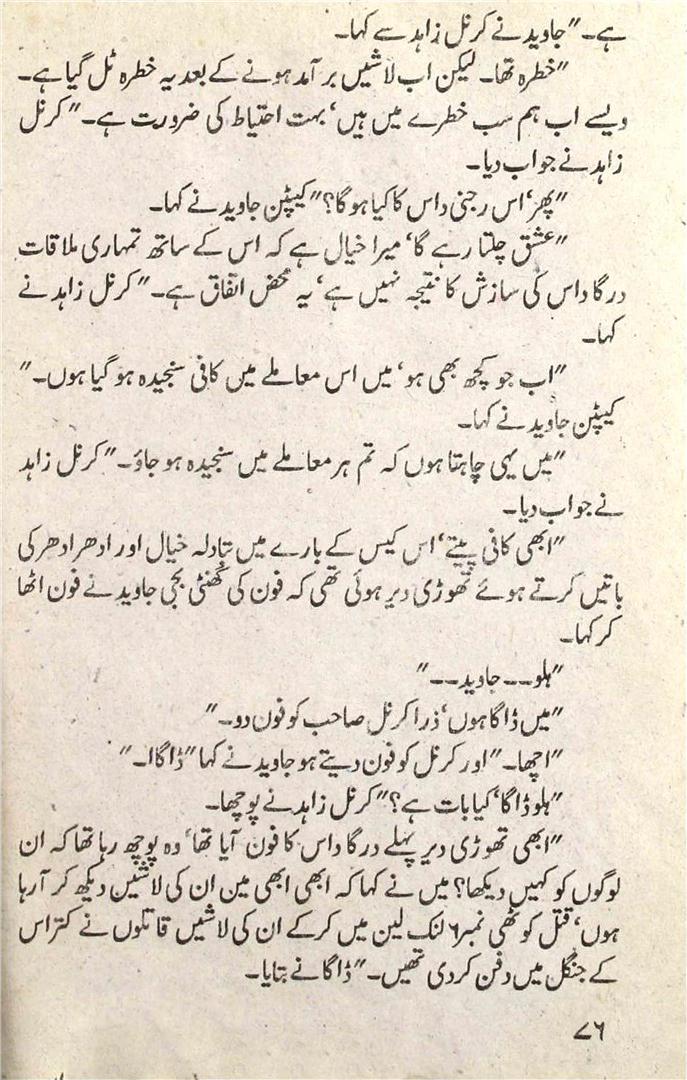 ہے۔" جاوید نے کرنل زاہد سے کہا۔
"خطرہ تھا۔ لیکن اب لاشیں برآمد ہونے کے بعد یہ خطرہ ٹل گیا ہے۔
ویسے اب ہم سب خطرے میں ہیں، بہت احتیاط کی ضرورت ہے۔" کرنل
زاہد نے جواب دیا۔
"پھر، اس رجنی داس کا کیا ہوگا؟" کیپٹن جاوید نے کہا۔
"عشق چلتا رہے گا، میرا خیال ہے کہ اس کے ساتھ تمہاری ملاقات
درگا داس کی سازش کا نتیجہ نہیں ہے، یہ محض اتفاق ہے۔" کرنل زاہد نے
کہا۔
"اب جو کچھ بھی ہو، میں اس معاملے میں کافی سنجیدہ ہو گیا ہوں۔"
کیپٹن جاوید نے کہا۔
"میں یہی چاہتا ہوں کہ تم ہر معاملے میں سنجیدہ ہو جاؤ۔" کرنل زاہد
نے جواب دیا۔
"ابھی کافی پیتے، اس کیس کے بارے میں تبادلہ خیال اور ادھر ادھر کی
باتیں کرتے ہوئے تھوڑی دیر ہوئی تھی کہ فون کی گھنٹی بجی جاوید نے فون اٹھا
کر کہا۔
"ہلو۔۔۔ جاوید۔۔۔"
"میں ڈاگا ہوں، ذرا کرنل صاحب کو فون دو۔"
"اچھا۔" اور کرنل کو فون دیتے ہو جاوید نے کہا "ڈاگا ا۔"
"ہلو ڈاگا، کیا بات ہے؟" کرنل زاہد نے پوچھا۔
"ابھی تھوڑی دیر پہلے درگا داس کا فون آیا تھا، وہ پوچھ رہا تھا کہ ان
لوگوں کو کہیں دیکھا؟ میں نے کہا کہ ابھی ابھی مین ان کی لاشیں دیکھ کر آ رہا
ہوں، قتل کوٹھی نمبر ۶ لنک لین میں کر کے ان کی لاشیں قاتلوں نے کتراس
کے جنگل میں دفن کر دی تھیں۔" ڈاگا نے بتایا۔
۷۶